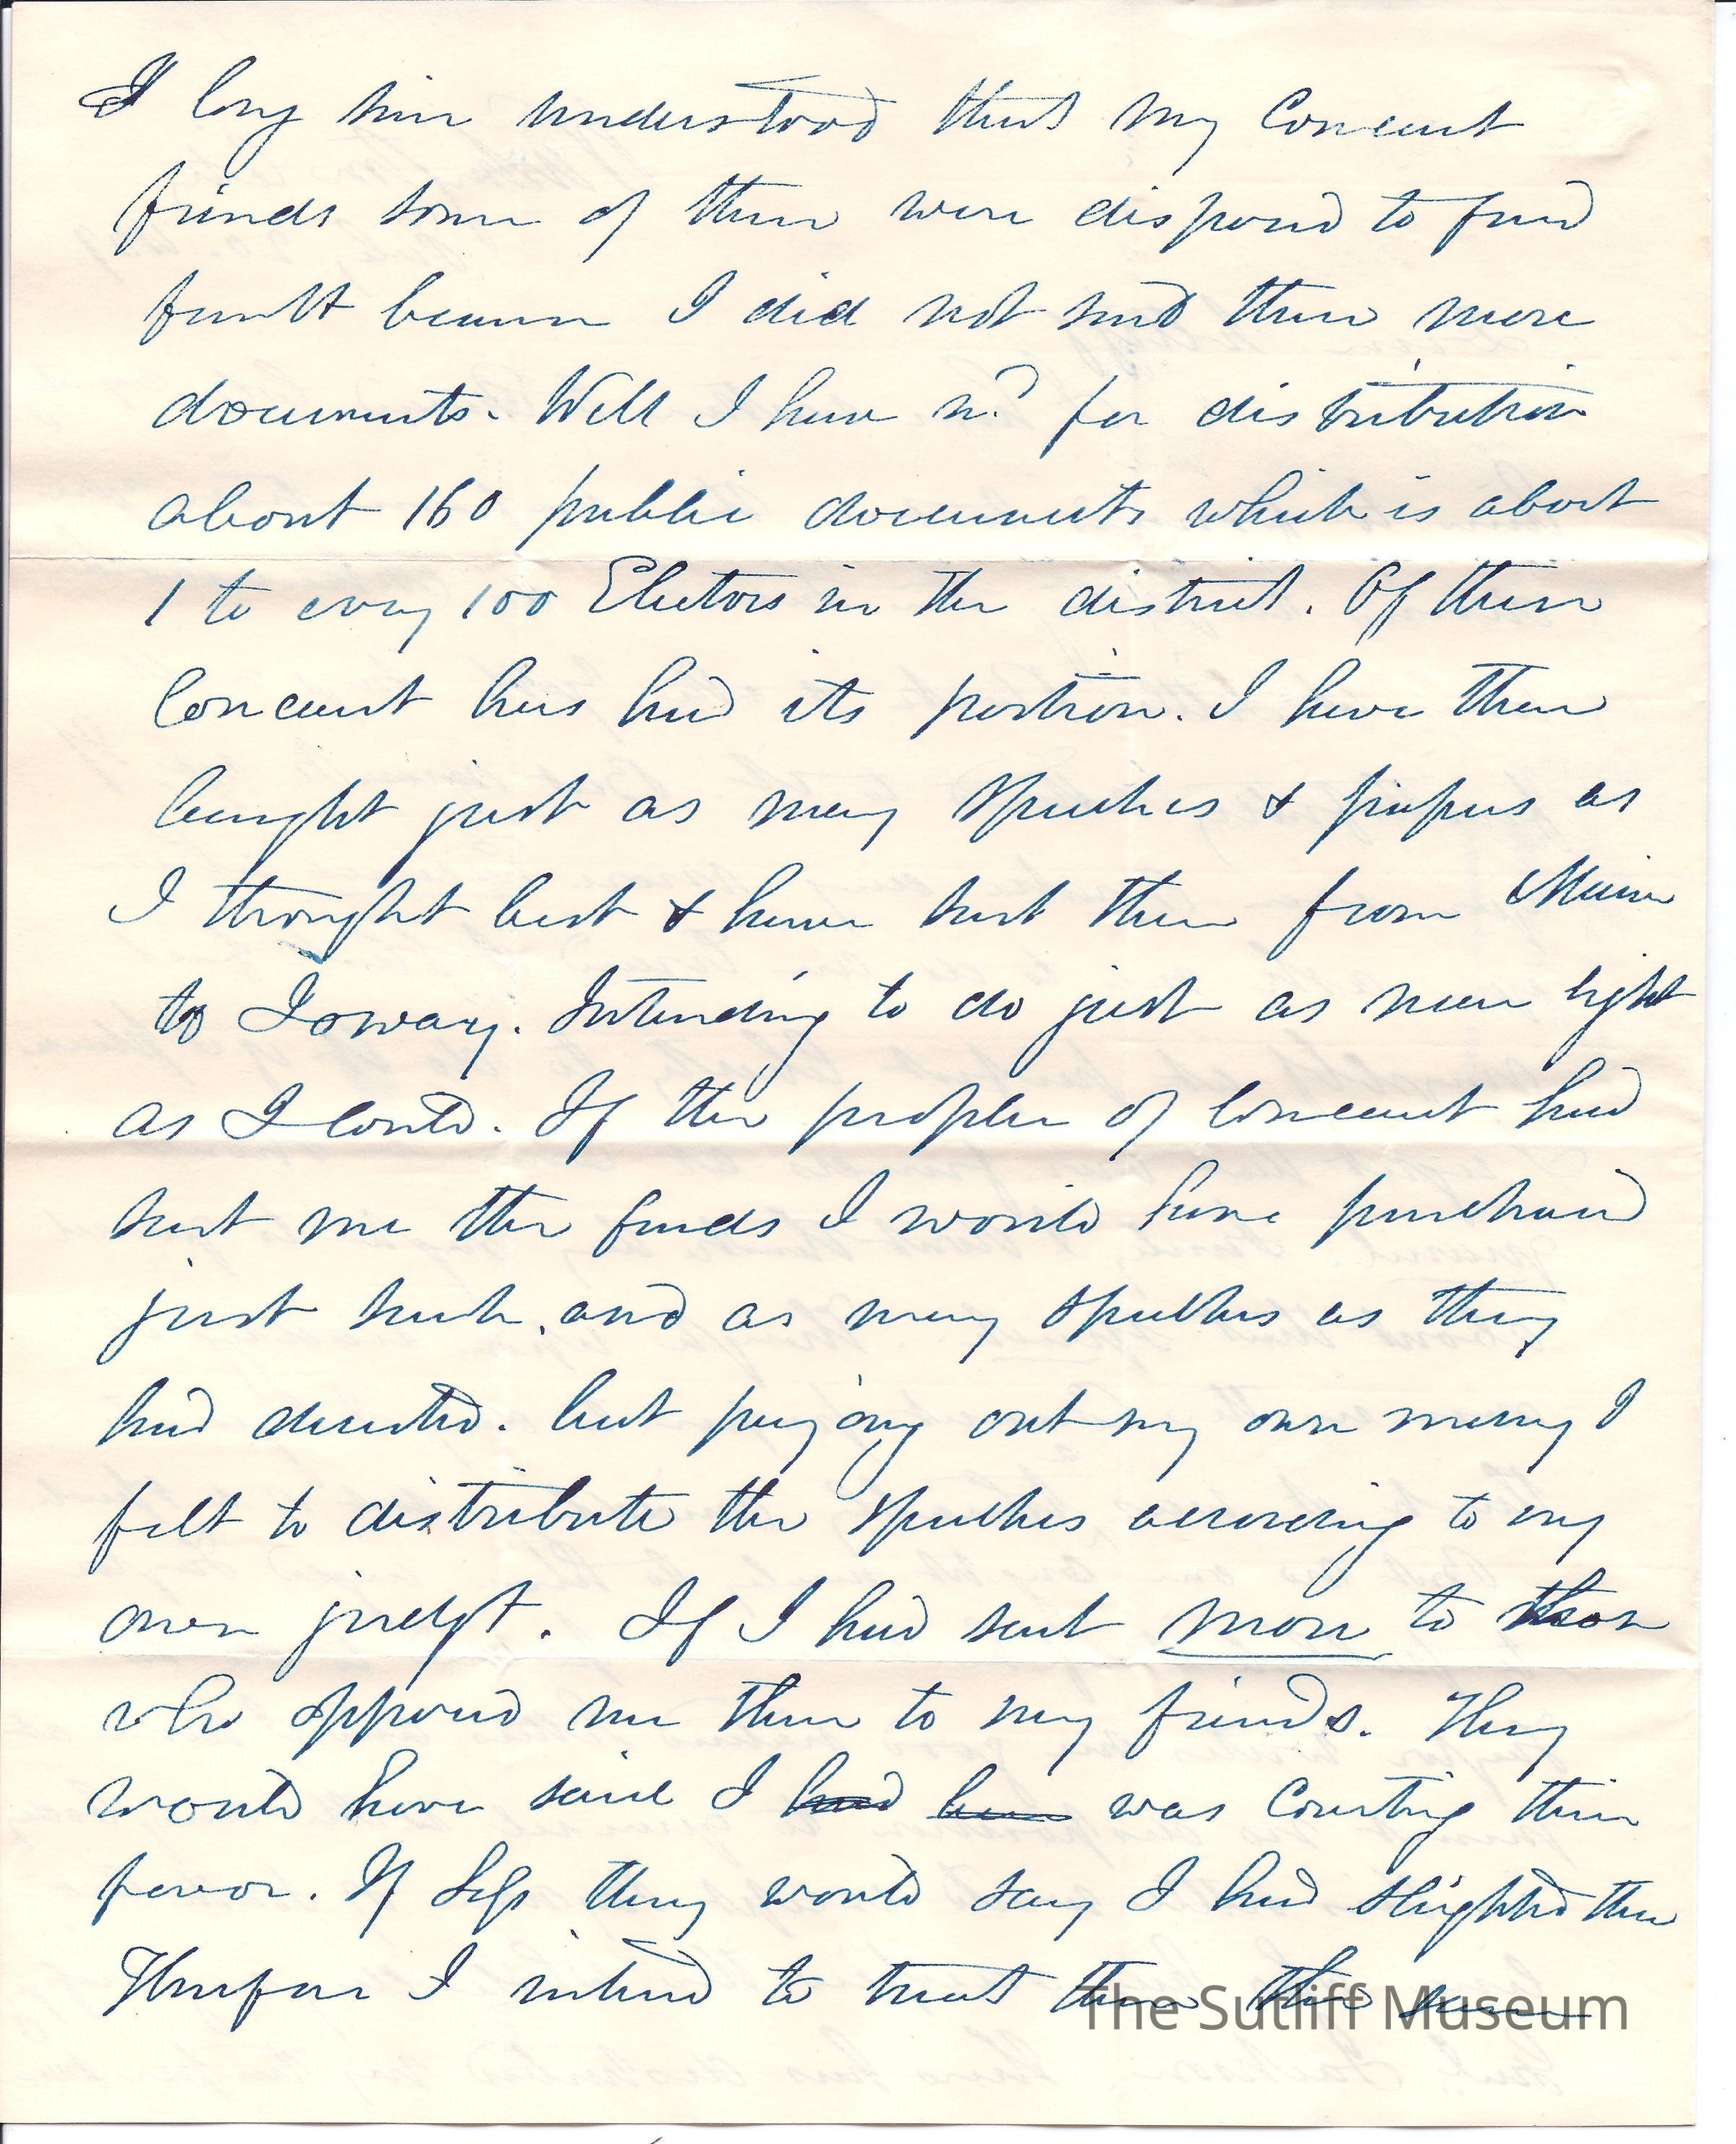 I long since understood that my Conneaut
friends some of them were disposed to find
fault because I did not send them more
documents. Well I have recd for distribution
about 160 public documents which is about
1 to every 100 Electors in the district. Of these
Conneaut has had its portion. I have then
bought just as many speeches & papers as
I thought best & have sent them from Maine
to Ioway. Intending to do just as near right
as I could. If the people of Conneaut had
sent me the funds I would have purchased
just such, and as many speeches as they
had directed. but paying out my own money I
felt to distribute the speeches according to my
own judgt. If I had sent more to those
who opposed me than to my friends. They
would have said I had been was Courting their
favor. If less they would say I had slighted them
Therefore I intend to treat them the same
The Sutliff Museum